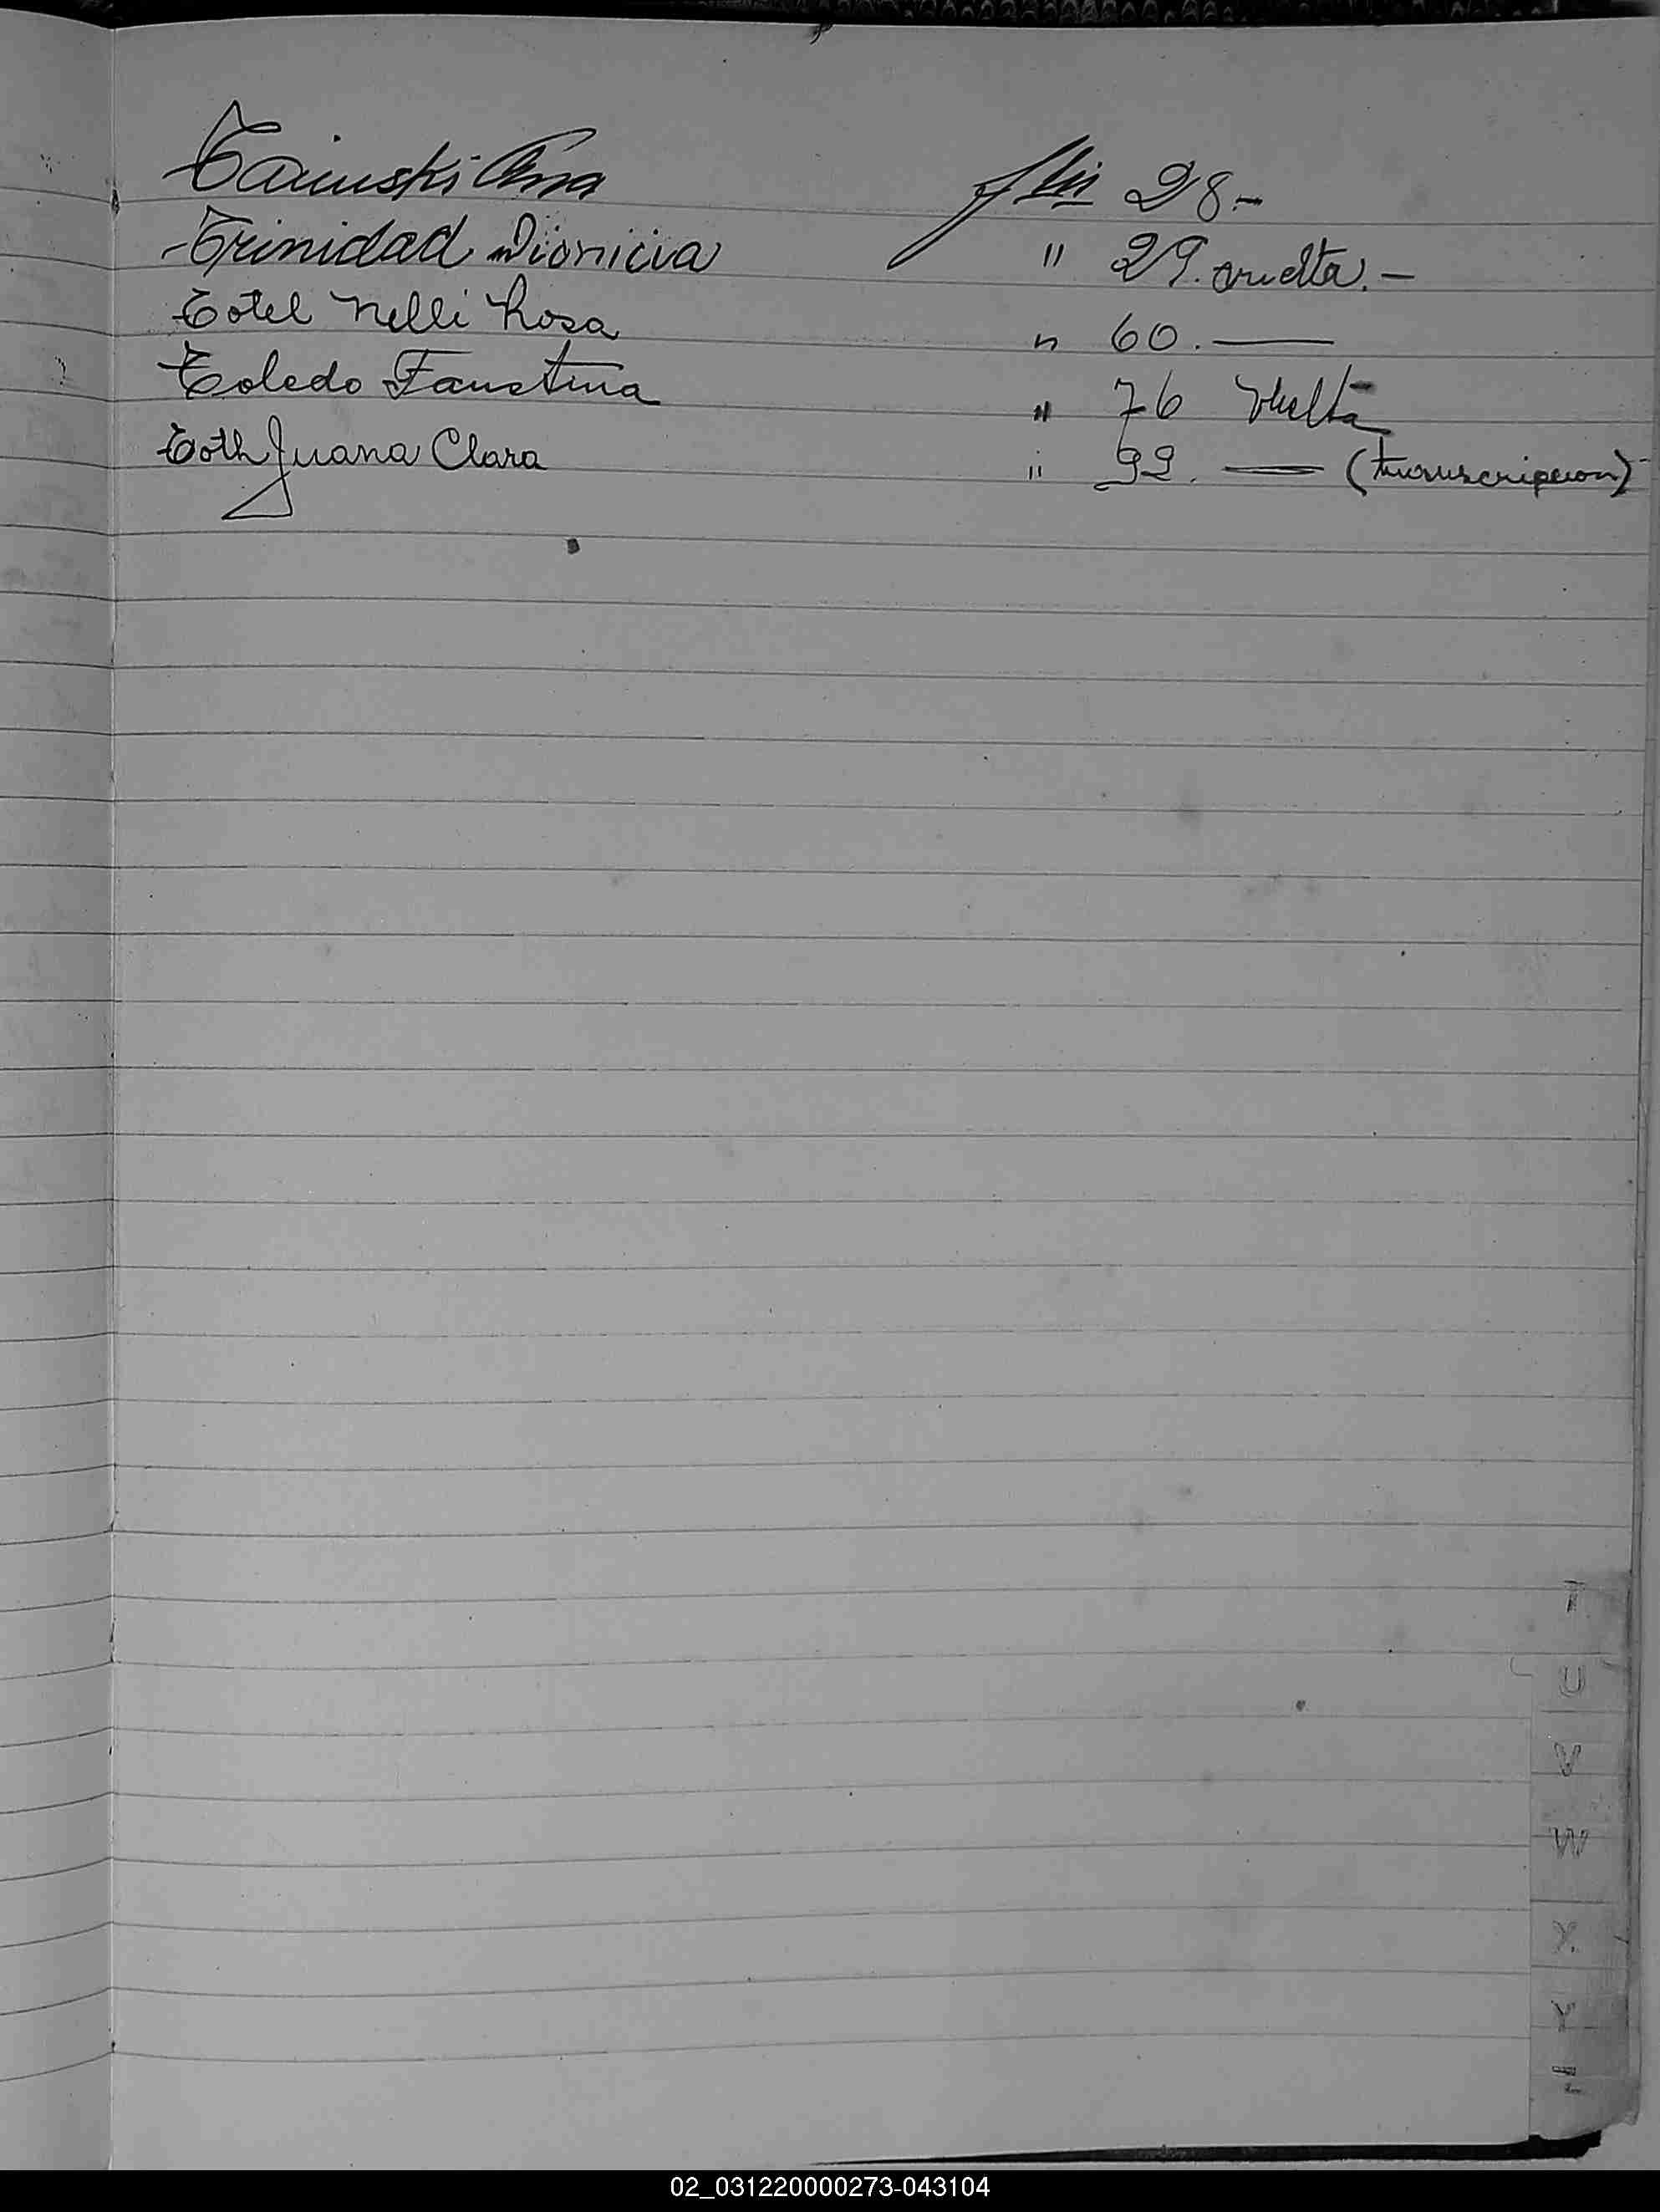 Tainski Ana flio 28.-
Trinidad Dionicia " 29. vuelta.-
Totel Nelli Rosa " 60. —
Toledo Faustina " 76 Vuelta
Toth Juana Clara " 99. — (transcripcion)
T
U
V
W
X
Y
Z
02_031220000273-043104